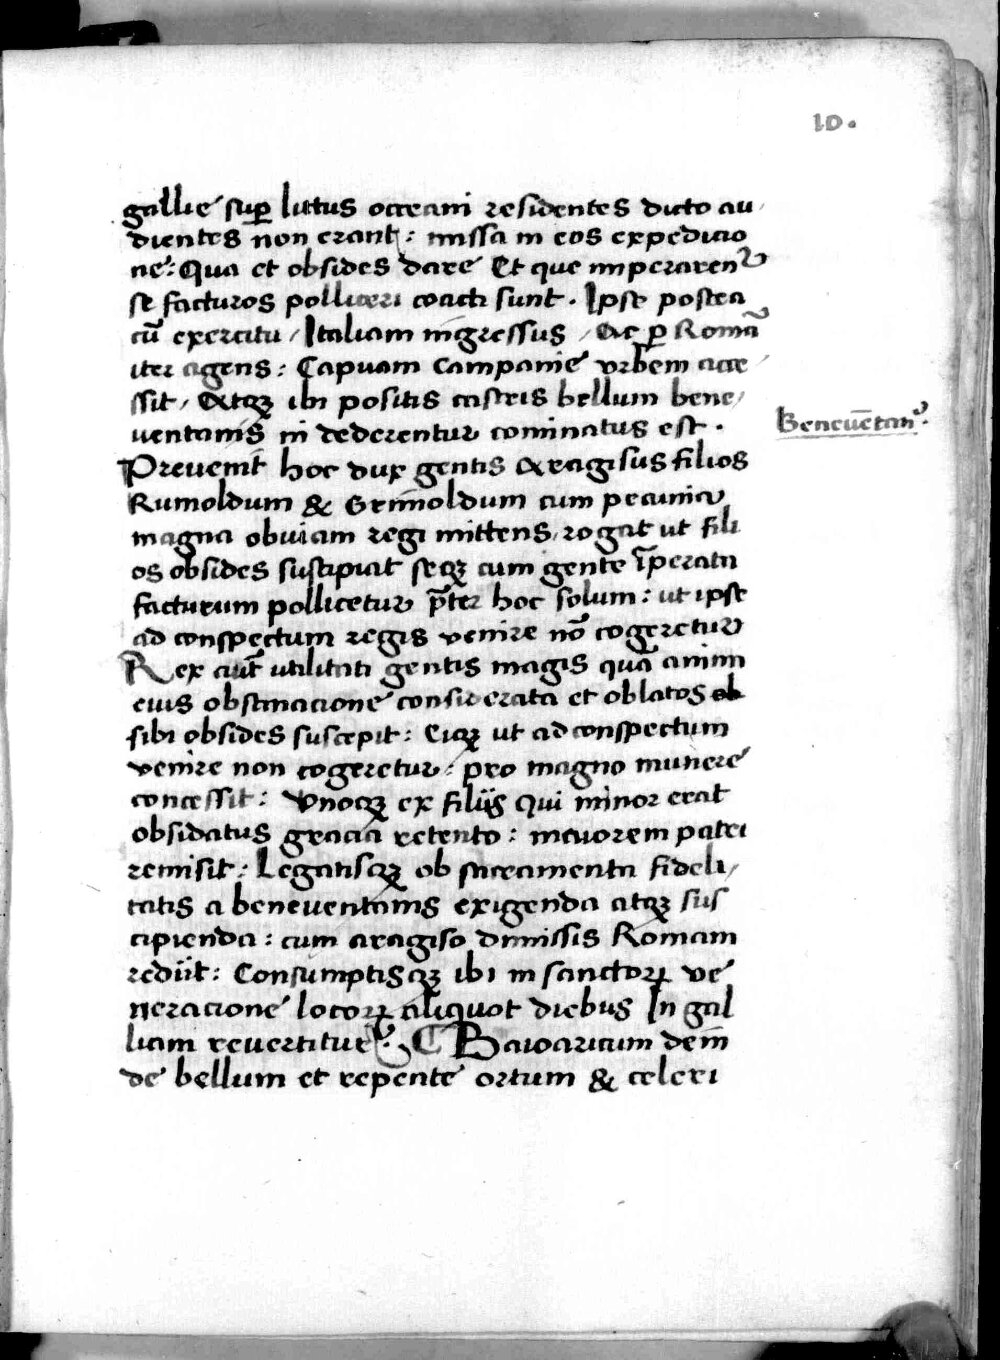 10.
gallie sup̄ littus occeani residentes dicto au
dientes non erant: missa in eos expedicio
ne: Qua et obsides dare Et que imperarenꝰ
se facturos polliceri coacti sunt. Ipse postea
cū exercitu / Italiam ingressus / Ac ꝑ Romā
iter agens: Capuam Campanie vrbem acce
ssit / Atqꝫ ibi positis castris bellum bene/
uentanis ni dederentur cominatus est.
Beneuētanꝰ.
Preuenit hoc dux gentis aragisus filios
Rumoldum & Grimoldum cum pecunia
magna obuiam regi mittens, rogat ut fili
os obsides suscipiat seqꝫ cum gente īperata
facturum pollicetur p̄ter hoc solum: ut ipse
ad conspectum regis venire nō cogeretur
Rex aūt utilitati gentis magis quā animi
eius obstinacione considerata et oblatos
sibi obsides suscepit: Eiqꝫ ut ad conspectum
venire non cogeretur: pro magno munere
concessit: Vnoqꝫ ex filijs qui minor erat
obsidatus gracia retento: maiorem patri
remisit: Legatisqꝫ ob sacramenta fideli/
tatis a beneuentanis exigenda atqꝫ sus
cipienda: cum aragiso dimissis Romam
redijt: Consumptisqꝫ ibi in sanctoꝝ ve
neracione locoꝝ aliquot diebus In gal
liam reuertitur. Baioaricum dein
de bellum et repente ortum & celeri